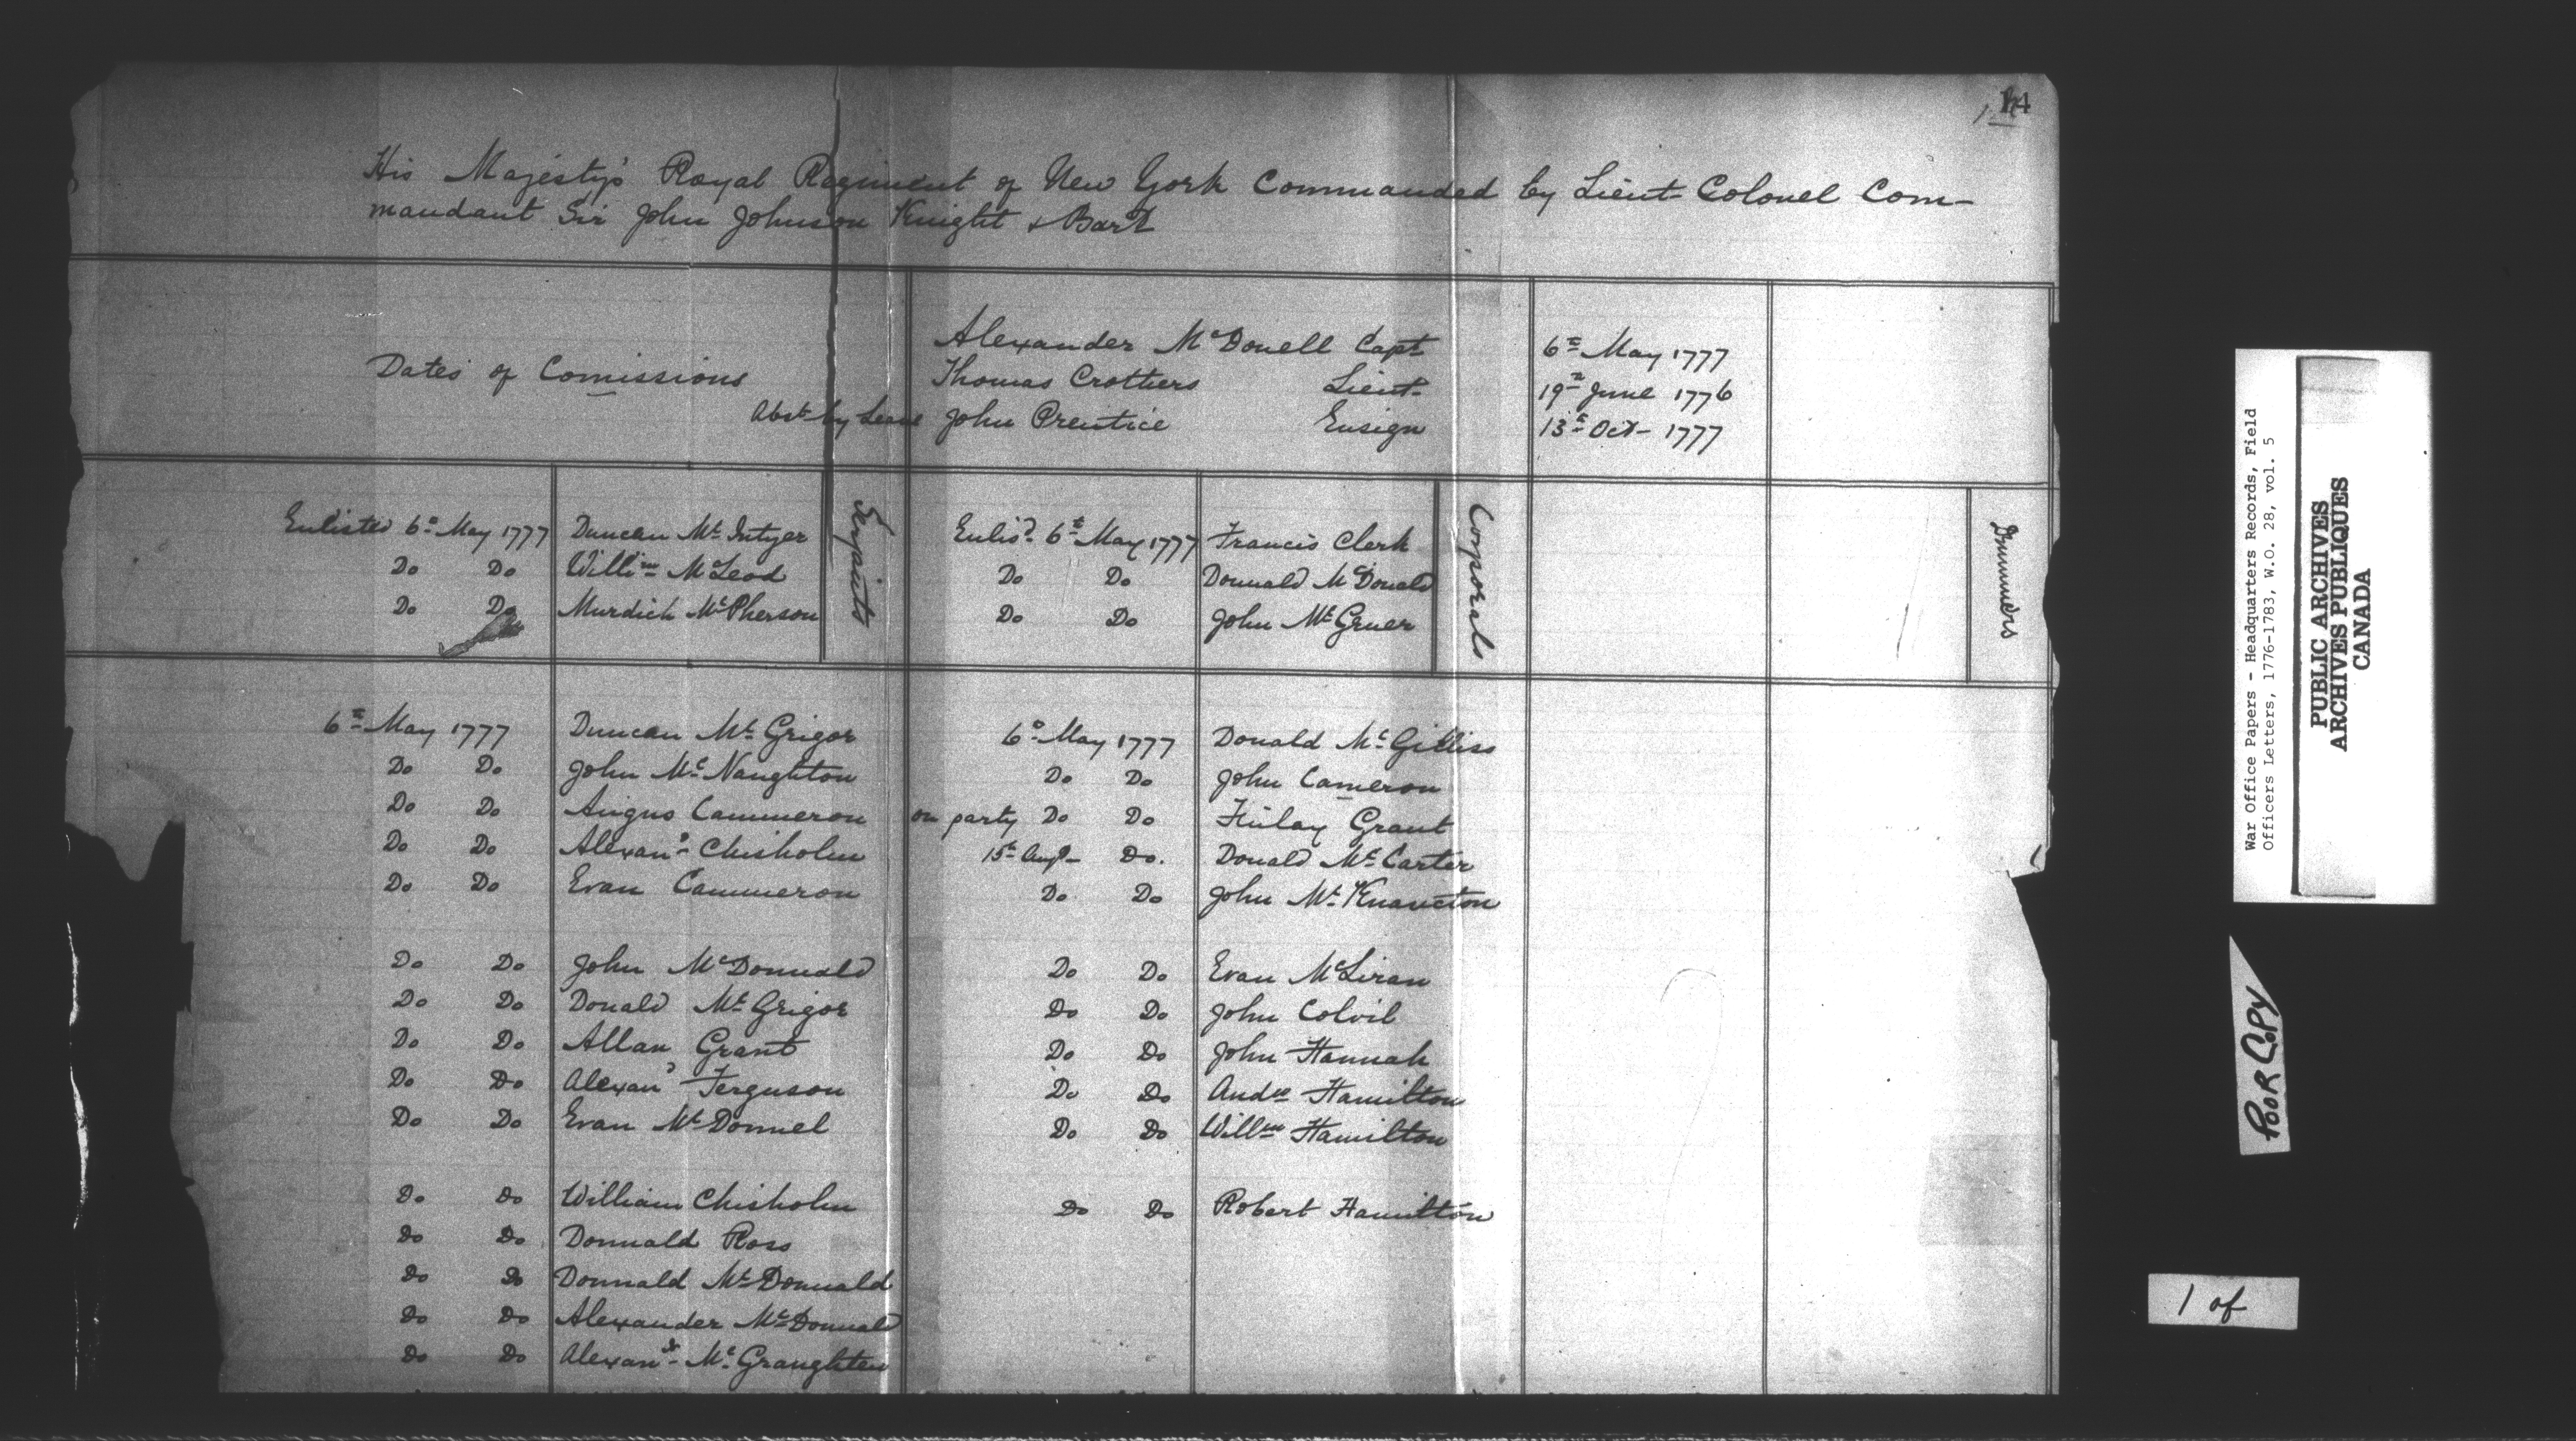 14
His Majesty's Royal Regiment of New York Commanded by Lieut- Colonel Com-
mandant Sir John Johnson Knight & Bart
Dates of Comissions
Alexander McDonell Capt 6th May 1777
Thomas Crothers Lieut- 19th June 1776
Abst by Leave John Prentice Ensign 13th Oct- 1777
Serjaints
Corporals
Drummers
Enlisted 6th May 1777 Duncan Mc Intyer Enlisd 6th May 1777 Francis Clerk
Do Do Willim McLeod Do Do Donnald McDonald
Do Do Murdich McPherson Do Do John McGruer
6th May 1777 Duncan Mc Grigor 6th May 1777 Donald Mc Gilliss
Do Do John Mc Naughton Do Do John Cameron
Do Do Angus Cammeron on party Do Do Finlay Grant
Do Do Alexanr Chisholm 15th Augt- Do. Donald Mc Carter
Do Do Evan Cammeron Do Do John Mc Knaucton
Do Do John McDonnald Do Do Evan McLiran
Do Do Donald Mc Grigor Do Do John Colvil
Do Do Allan Grant Do Do John Hannah
Do Do Alexanr Ferguson Do Do Andrw Hamilton
Do Do Evan Mc Donnel Do Do Willm Hamilton
Do Do William Chisholm Do Do Robert Hamilton
Do Do Donnald Ross
Do Do Donnald Mc Donnald
Do Do Alexander Mc Donnald
Do Do Alexanr Mc Graughten
War Office Papers - Headquarters Records, Field
Officers Letters, 1776-1783, W.O. 28, vol. 5
PUBLIC ARCHIVES
ARCHIVES PUBLIQUES
CANADA
POOR COPY
1 of